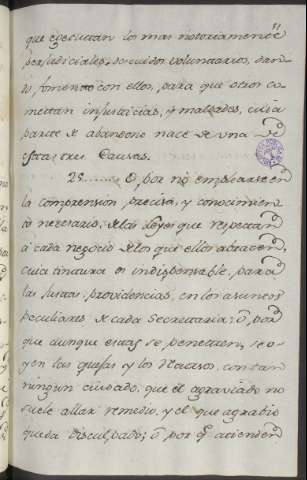 51
que egecutan los mas notoriamente
perjudiciales, descuidos voluntarios, dan
do fomento con ellos, para que otros co
metan injusticias, y maldades, cuia
parte de abandono nace de una de
estas tres Causas.
28 O por no emplearse en
la comprension precisa, y conocimien
to necesario, de las Leyes que respectan
à cada negocio de los que ellos abrazen,
cuia tintura es indispensable, para
las justas providencias, en los asuntos
peculiares de cada Secretaria; ò, por
que aunque estas se penetren, se o
yen las quejas y los con tan
ningun cuidado, que el agraviado no
suele allar remedio, y el que agrabió
queda disculpado; ò por q.e atienden